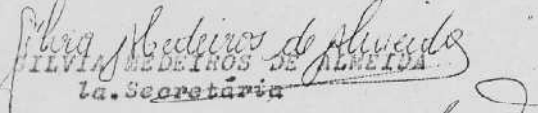 Silvia Medeiros de Almeida
SILVIA MEDEIROS DE ALMEIDA
1a.Secretária